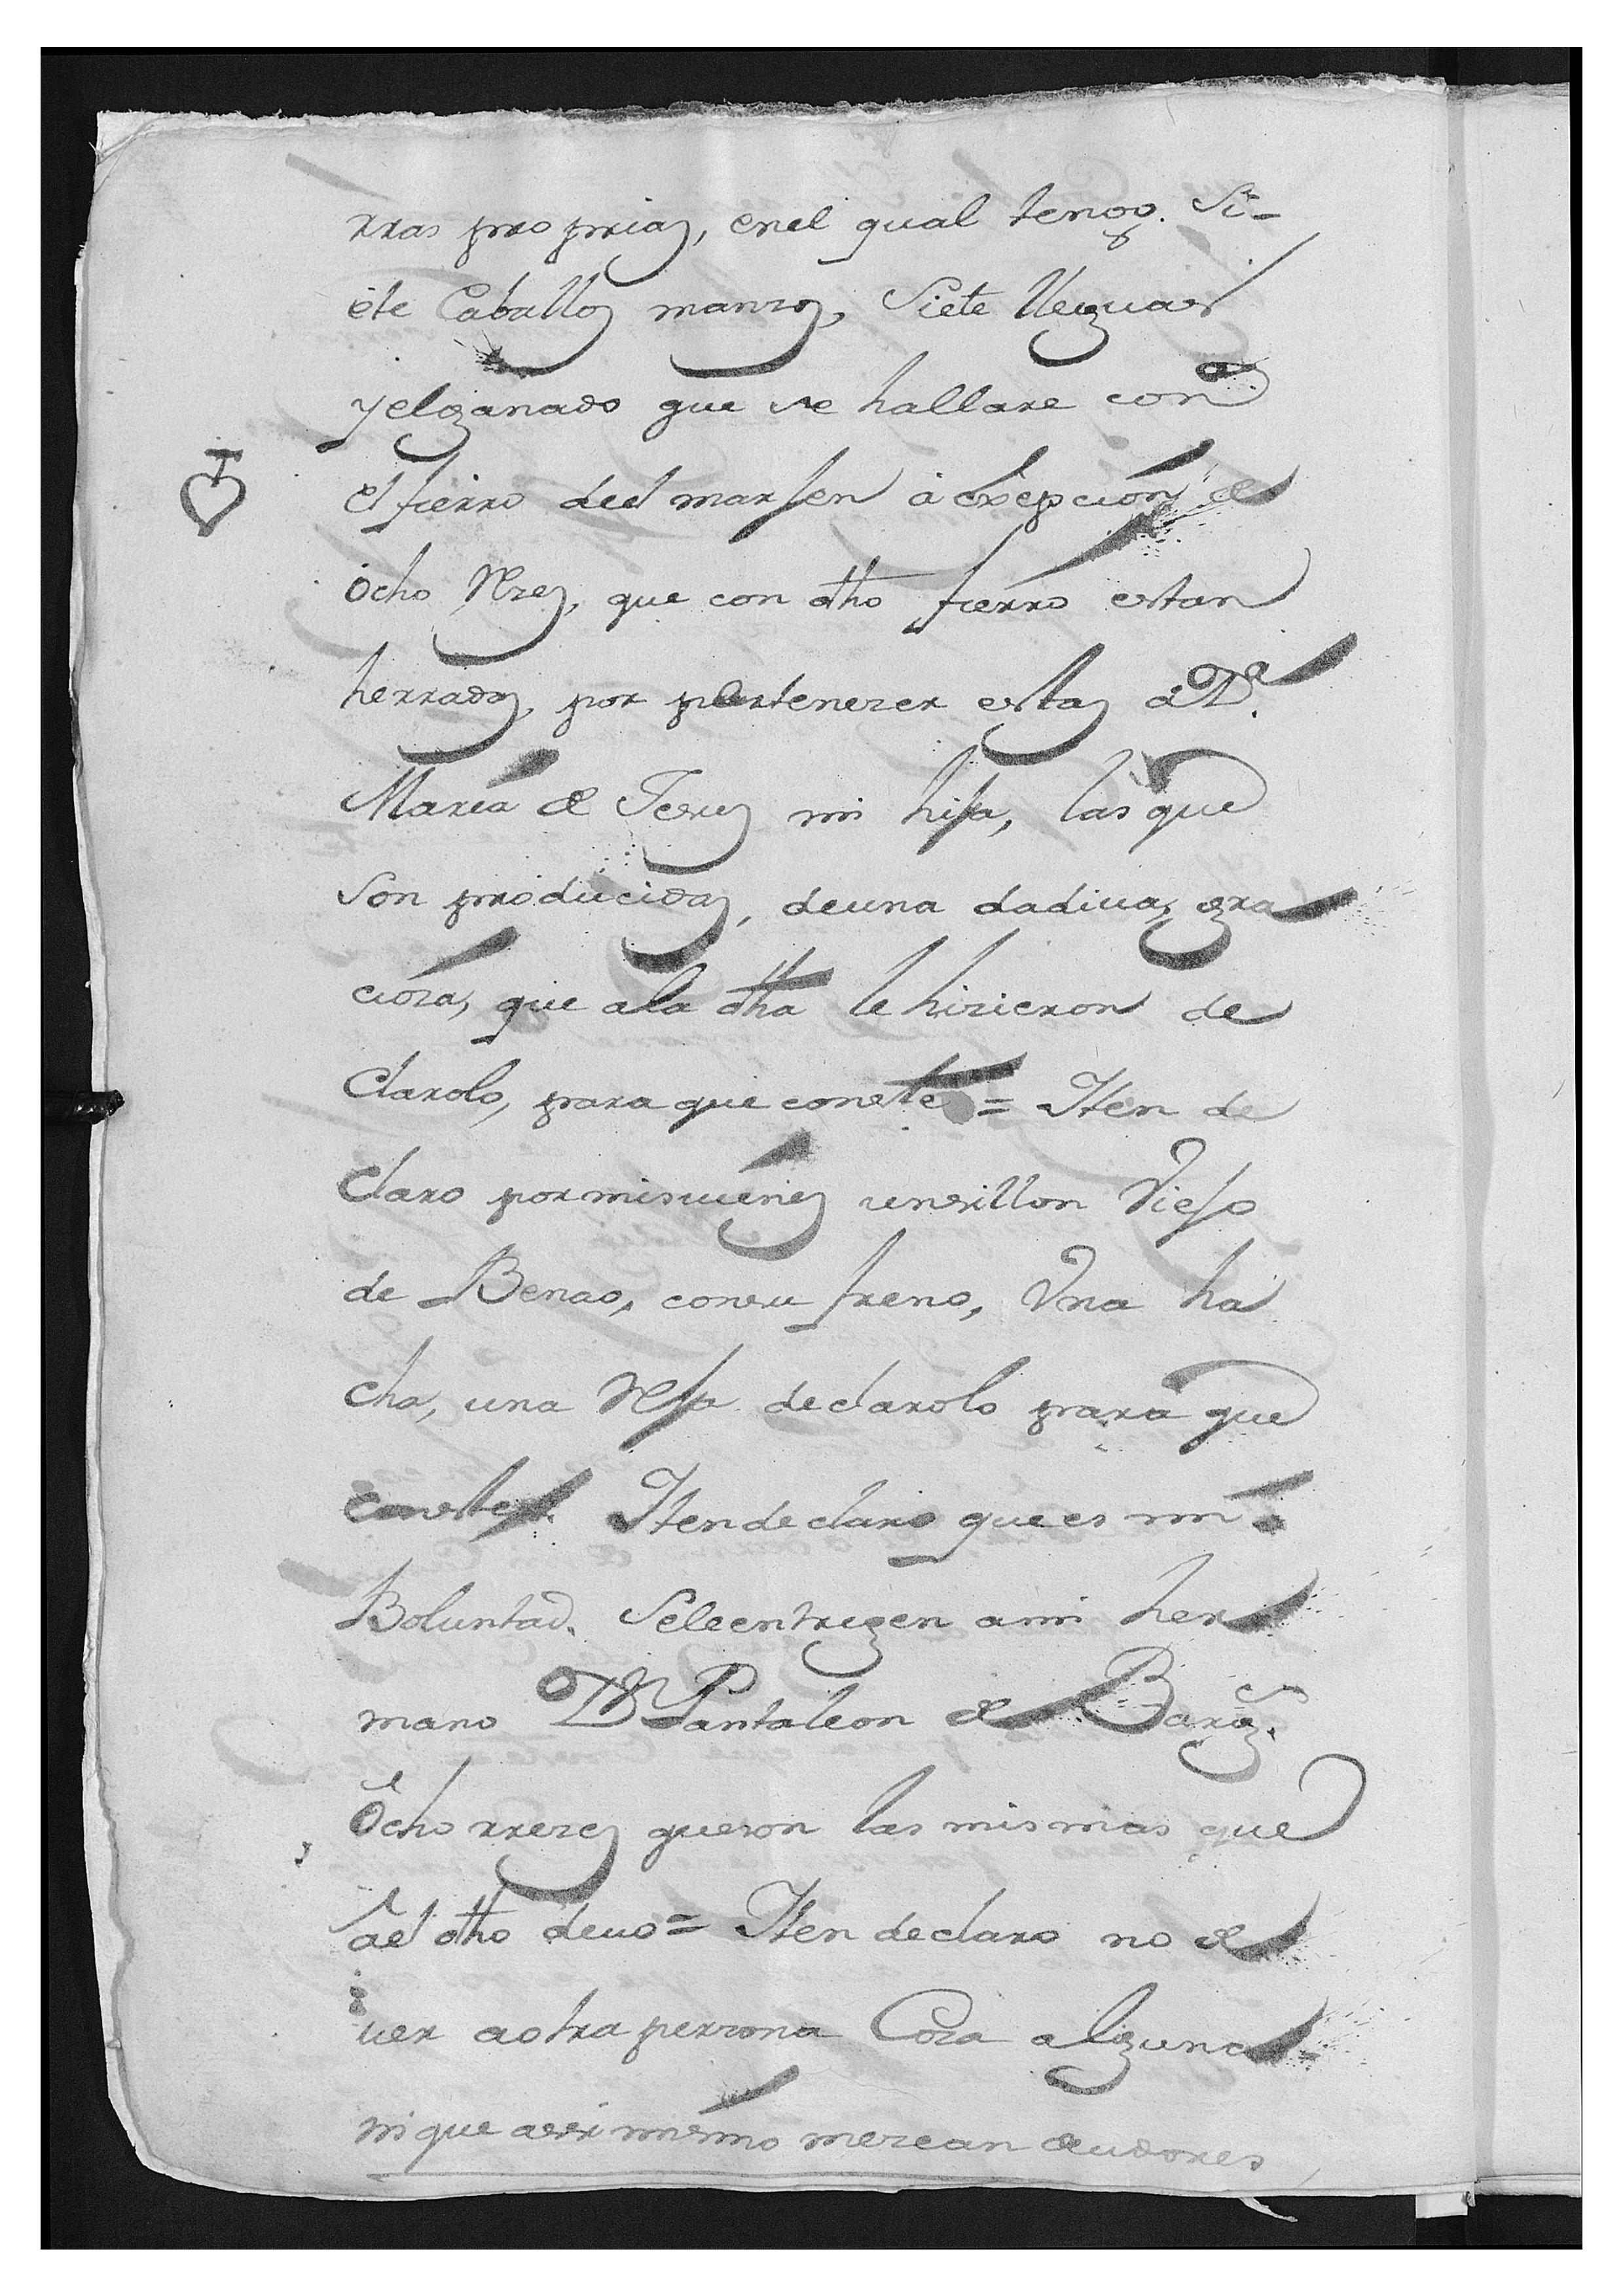 rras proprias, enel qual tengo. Si-
ete Caballos mansos, Siete lleguas
y elganado que se hallare con
el fierro del marjen á exepcion de
ocho Rzes, que con dho fierro estan
herrados, por pertenezer estas á Dª.
Maria de Jesus mi hija, las que
son producidas, deuna dadiua, gra
ciosa, que ala dha le hizieron de
Clarolo, para que conste = Iten de
Claro pormisuienes unsillon Viejo
de Benao, consu freno, Vna ha
cha, una Reja declarolo para que
conste. Iten declaro que es mi
Boluntad. Seleentregen ami her
mano Dn Pantaleon de Barg.s
Ocho rrezes queson las mismas que
ael dho deuo = Iten declaro no de
uer aotra persona Cosa alguna
nique assi mismo mesean deudores